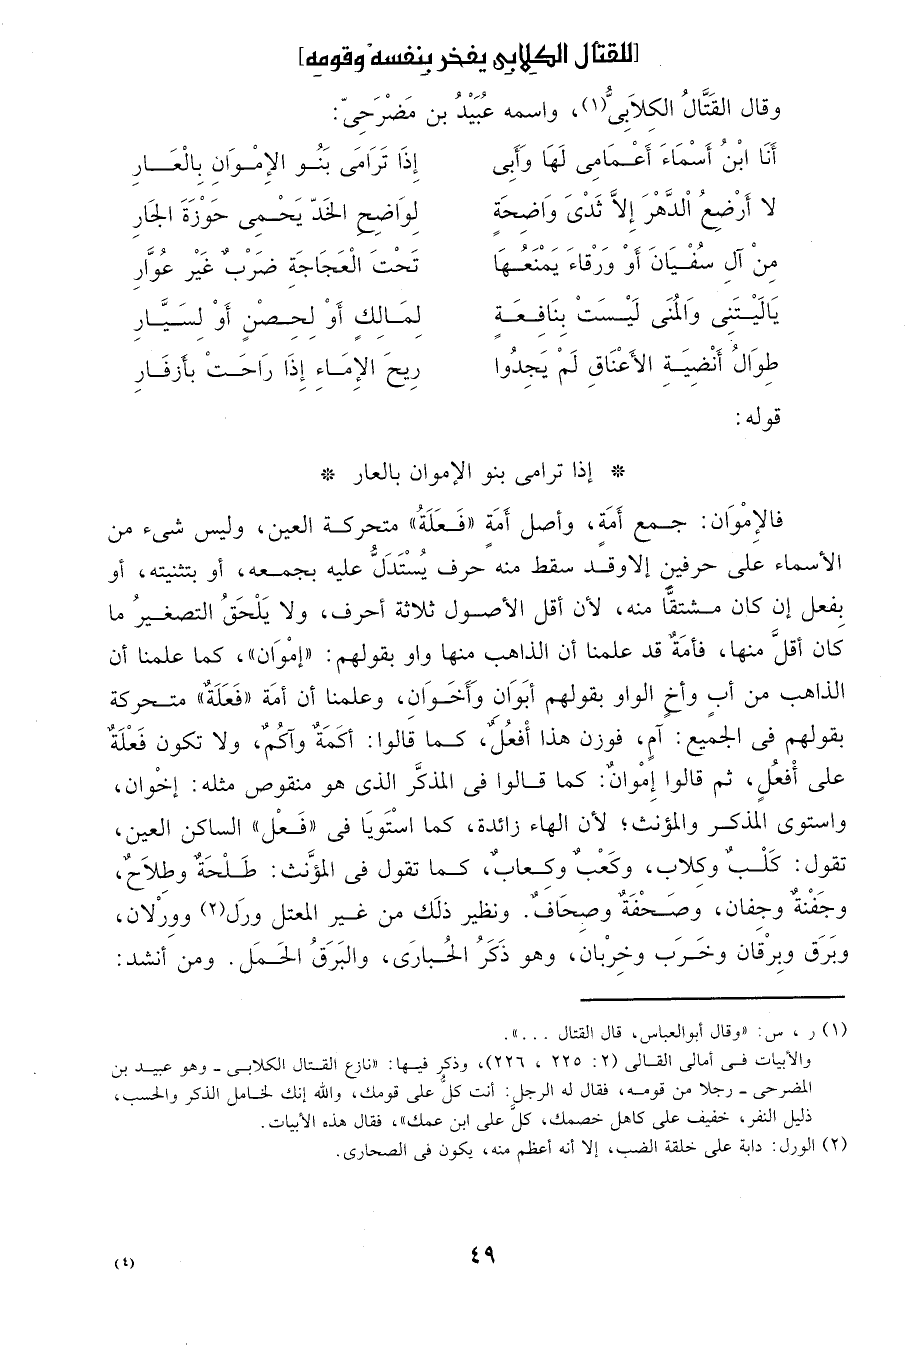 [للقتال الكلابى يفخر بنفسه وقومه]
وقال القَتَّالُ الكلاَبىُّ(١)، واسمه عُبَيْدُ بن مَضْرَحِىّ:
أنَا ابْنُ أسْمَاءَ أعْمَامِى لَهَا وَأَبِى إِذَا تَرَامَى بَنُو الإِمْوَانِ بِالْعَارِ
لا أرْضَعُ الدَّهْرَ إلاَّ ثَدْىَ وَاضِحَةٍ لِوَاضِحِ الخَدّ يَحْمِى حَوْزَةَ الجَارِ
مِنْ آلِ سُفْيَانَ أوْ وَرْقَاءَ يَمْنَعُهَا تَحْتَ الْعَجَاجَةِ ضَرْبٌ غَيْرُ عُوَّارِ
يَالَيْتَنِى وَالمُنَى لَيْسَتْ بِنَافِعَةٍ لِمَالِكٍ أوْ لِحِصْنٍ أوْ لِسَيَّارِ
طِوَالُ أنْضِيَةِ الأعْنَاقِ لَمْ يَجِدُوا رِيحَ الإِمَاءِ إذَا رَاحَتْ بأزفَارِ
قوله:
* إذا ترامى بنو الإموان بالعار *
فالإمْوَان: جمع أمَةٍ، وأصل أمَةٍ «فَعَلَةٌ» متحركة العين، وليس شىء من
الأسماء على حرفين إلا وقد سقط منه حرف يُسْتَدَلُّ عليه بجمعه، أو بتثنيته، أو
بفعل إن كان مشتقًّا منه، لأن أقل الأصول ثلاثة أحرف، ولا يَلْحَقُ التصغيرُ ما
كان أقلَّ منها، فأمَةٌ قد علمنا أن الذاهب منها واو بقولهم: «إمْوَان»، كما علمنا أن
الذاهب من أبٍ وأخٍ الواو بقولهم أبَوَانِ وأخَوانِ، وعلمنا أن أمَة «فَعَلَةٌ» متحركة
بقولهم فى الجميع: آمٍ، فوزن هذا أفْعُلٌ، كما قالوا: أكَمَةٌ وآكُمٌ، ولا تكون فَعْلَةٌ
على أفْعُلٍ، ثم قالوا إمْوانٌ: كما قالوا فى المذكَّر الذى هو منقوص مثله: إخْوان،
واستوى المذكر والمؤنث؛ لأن الهاء زائدة، كما استَويَا فى «فَعْل» الساكن العين،
تقول: كَلْبٌ وكلاب، وكَعْبٌ وكعابٌ، كما تقول فى المؤنَّث: طَلْحَةٌ وطلاَحٌ،
وجَفْنَةٌ وجفان، وصَحْفَةٌ وصِحَافٌ. ونظير ذلك من غير المعتل ورل(٢) وورْلان،
وبَرَق وبِرْقان وخَرَب وخِرْبان، وهو ذَكَرُ الحُبارَى، والبَرَقُ الحَمَل. ومن أنشد:
(١) ر ، س: «وقال أبو العباس، قال القتال ...».
والأبيات فى أمالى القالى (٢: ٢٢٥ ، ٢٢٦)، وذكر فيها: «نازع القتال الكلابى ـ وهو عبيد بن
المضرحى ـ رجلا من قومه، فقال له الرجل: أنت كلٌّ على قومك، والله إنك لخامل الذكر والحسب،
ذليل النفر، خفيف على كاهل خصمك، كلٌّ على ابن عمك»، فقال هذه الأبيات.
(٢) الورل: دابة على خلقة الضب، إلا أنه أعظم منه، يكون فى الصحارى.
٤٩
(٤)